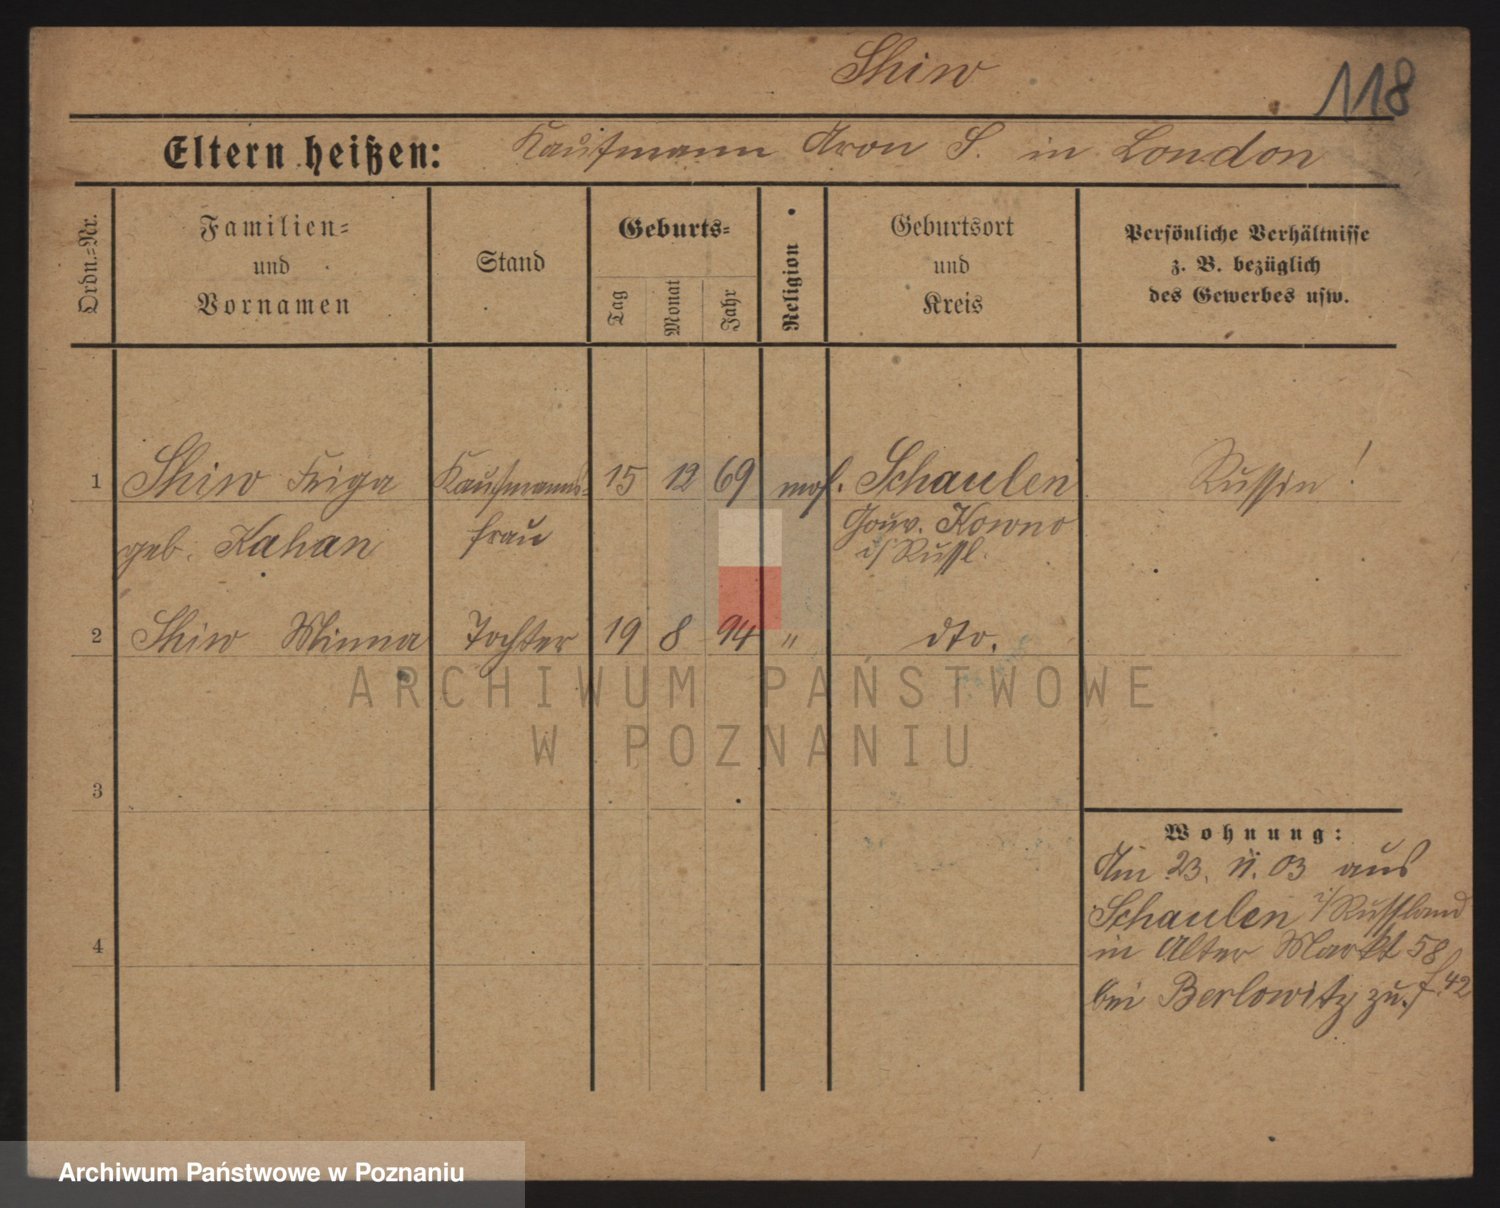 Shiw
118
Eltern heißen: Kaufmann Aron S. in London
Ordn.-Nr.
Familien-
und
Vornamen
Stand
Geburts-
Tag
Monat
Jahr
Religion
Geburtsort
und
Kreis
Persönliche Verhältnisse
z. B. bezüglich
des Gewerbes usw.
1 Shiw Feiga Kaufmanns- 15 12 69 mos. Schaulen Russin!
geb. Kahan frau Gouv. Kowno
i/Russl.
2 Shiw Minna Tochter 19 8 94 " dto.
3
4
Wohnung:
Am 23. 11. 03 aus
Schaulen i/Russland
in Alter Markt 58
bei Berlowitz zu. f. 42
ARCHIWUM PAŃSTWOWE
W POZNANIU
Archiwum Państwowe w Poznaniu